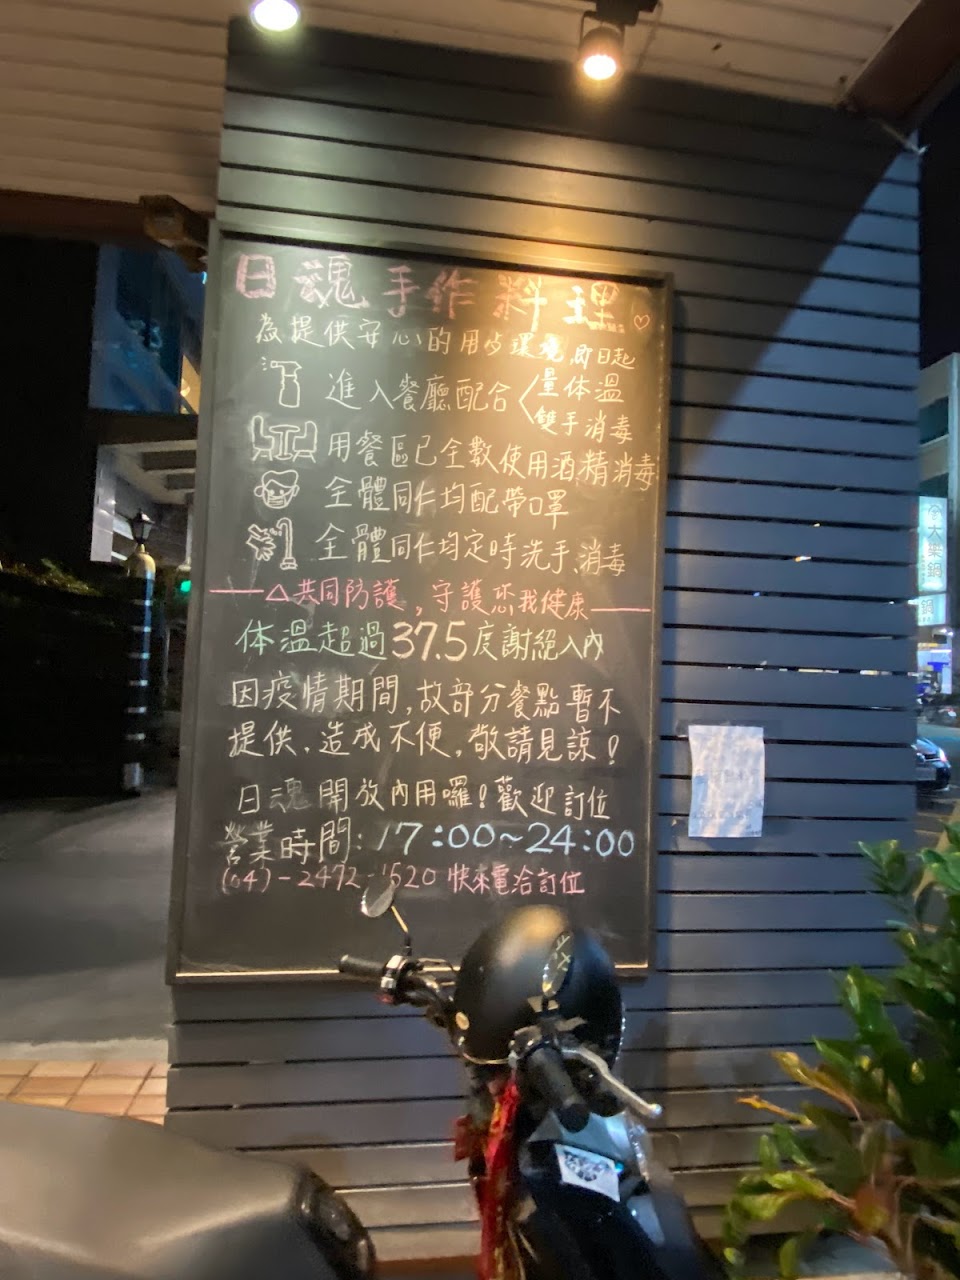 日魂手作料理
為提供安心的用歺環境,即日起
進入餐廳配合<量体溫
雙手消毒
用餐區已全數使用酒精消毒
全體同仁均配帶口罩
全體同仁均定時洗手、消毒
△共同防護,守護您我健康
体溫超過37.5度謝絕入內
因疫情期間,故部分餐點暫不
提供.造成不便,敬請見諒!
日魂開放內用囉!歡迎訂位
營業時間:17:00~24:00
(04)-2472-1520快來電洽訂位
大樂鍋
鍋